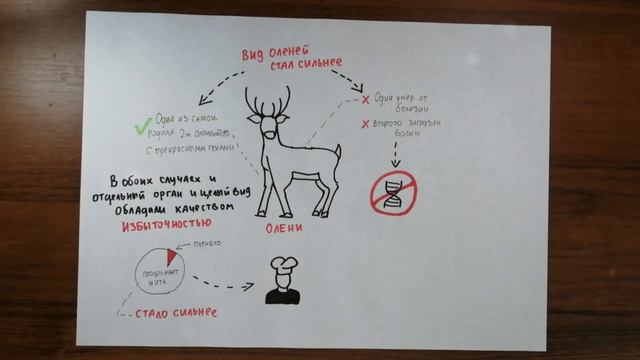 ВИД ОЛЕНЕЙ
СТАЛ СИЛЬНЕЕ
ОДНА ИЗ САМОК
РОДИЛА 2-Х ОЛЕНЯТ
С ПРЕКРАСНЫМИ ГЕНАМИ
ОДИН УМЕР ОТ
БОЛЕЗНИ
ВТОРОГО ЗАГРЫЗЛИ
ВОЛКИ
В ОБОИХ СЛУЧАЯХ И
ОТДЕЛЬНЫЙ ОРГАН И ЦЕЛЫЙ ВИД
ОБЛАДАЛИ КАЧЕСТВОМ
ИЗБЫТОЧНОСТЬЮ
ОЛЕНИ
ПОГИБЛО
ПРОДОЛЖАЕТ
ЖИТЬ
СТАЛО СИЛЬНЕЕ